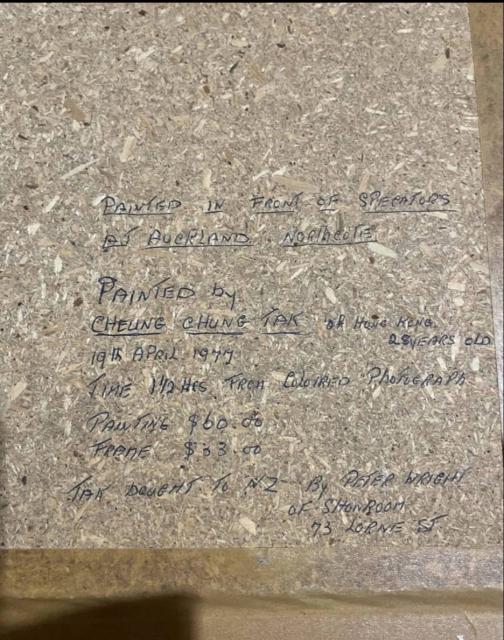 PAINTED IN FRONT OF SPECATORS
AT AUCKLAND. NORTHCOTE
PAINTED by
CHEUNG CHUNG TAK OF HONG KONG
28 YEARS OLD
19th APRIL 1977
TIME 1 1/2 HRS FROM COLOURED PHOTOGRAPH
PAINTING $60.00
FRAME $33.00
TAK BOUGHT TO NZ BY PETER WRIGHT
OF SHOWROOM
73 LORNE ST